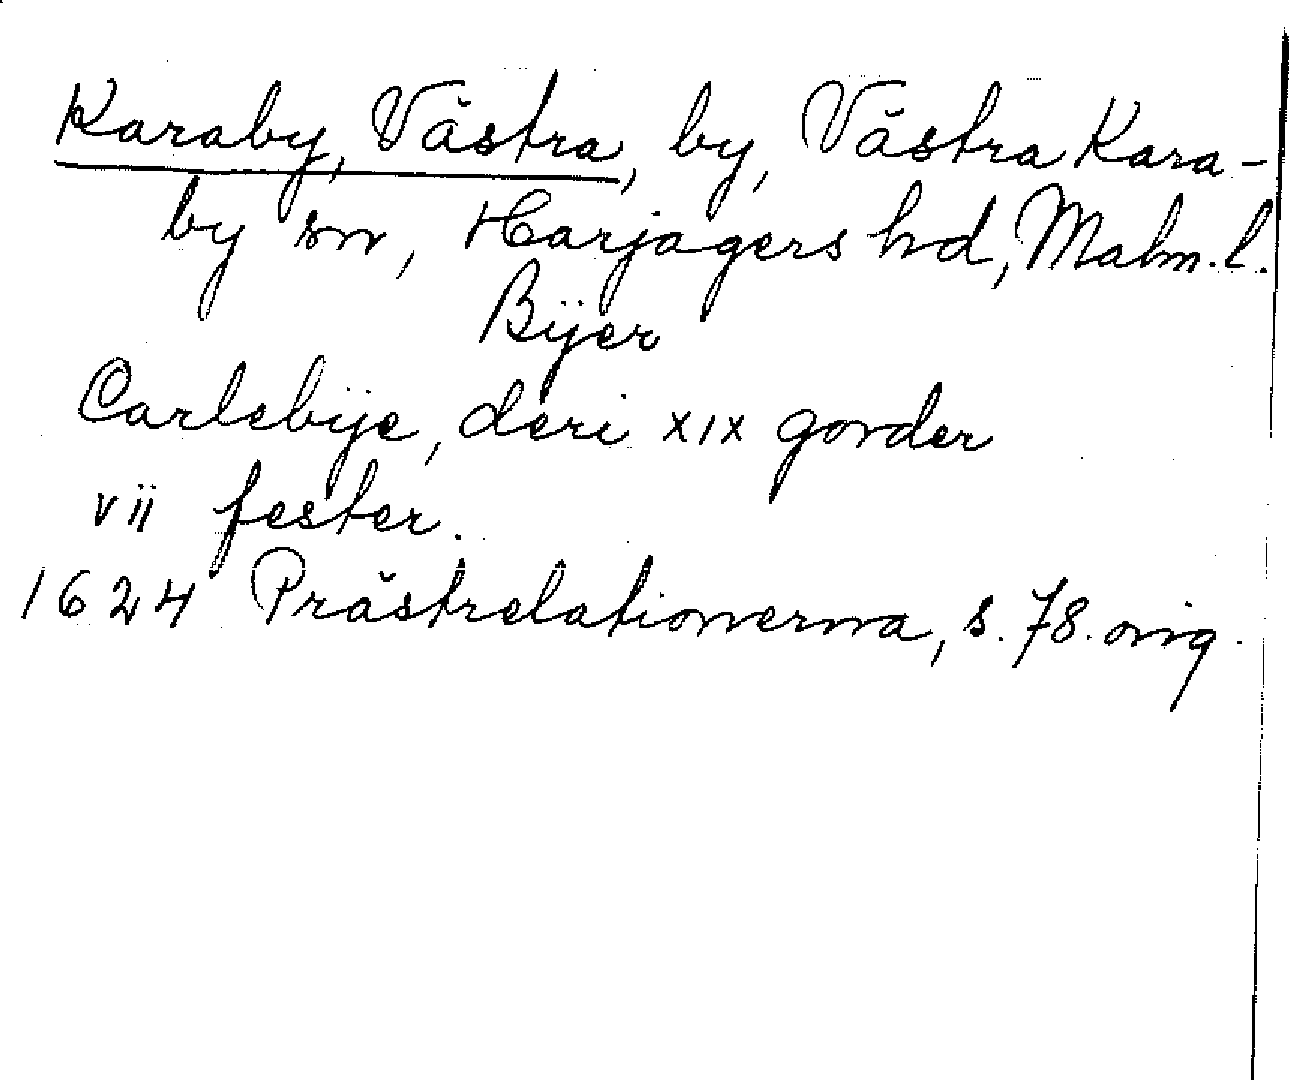 Karaby, Västra, by, Västra Kara-
by sn, Harjagers hd, Malm. l.
Bÿer
Carlebÿe, deri XIX gorder
vii fester.
1624 Prästrelationerna, s. 78. orig.